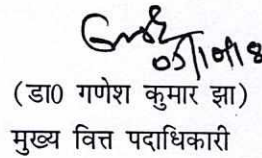 05/10/18
(डा0 गणेश कुमार झा)
मुख्य वित्त पदाधिकारी